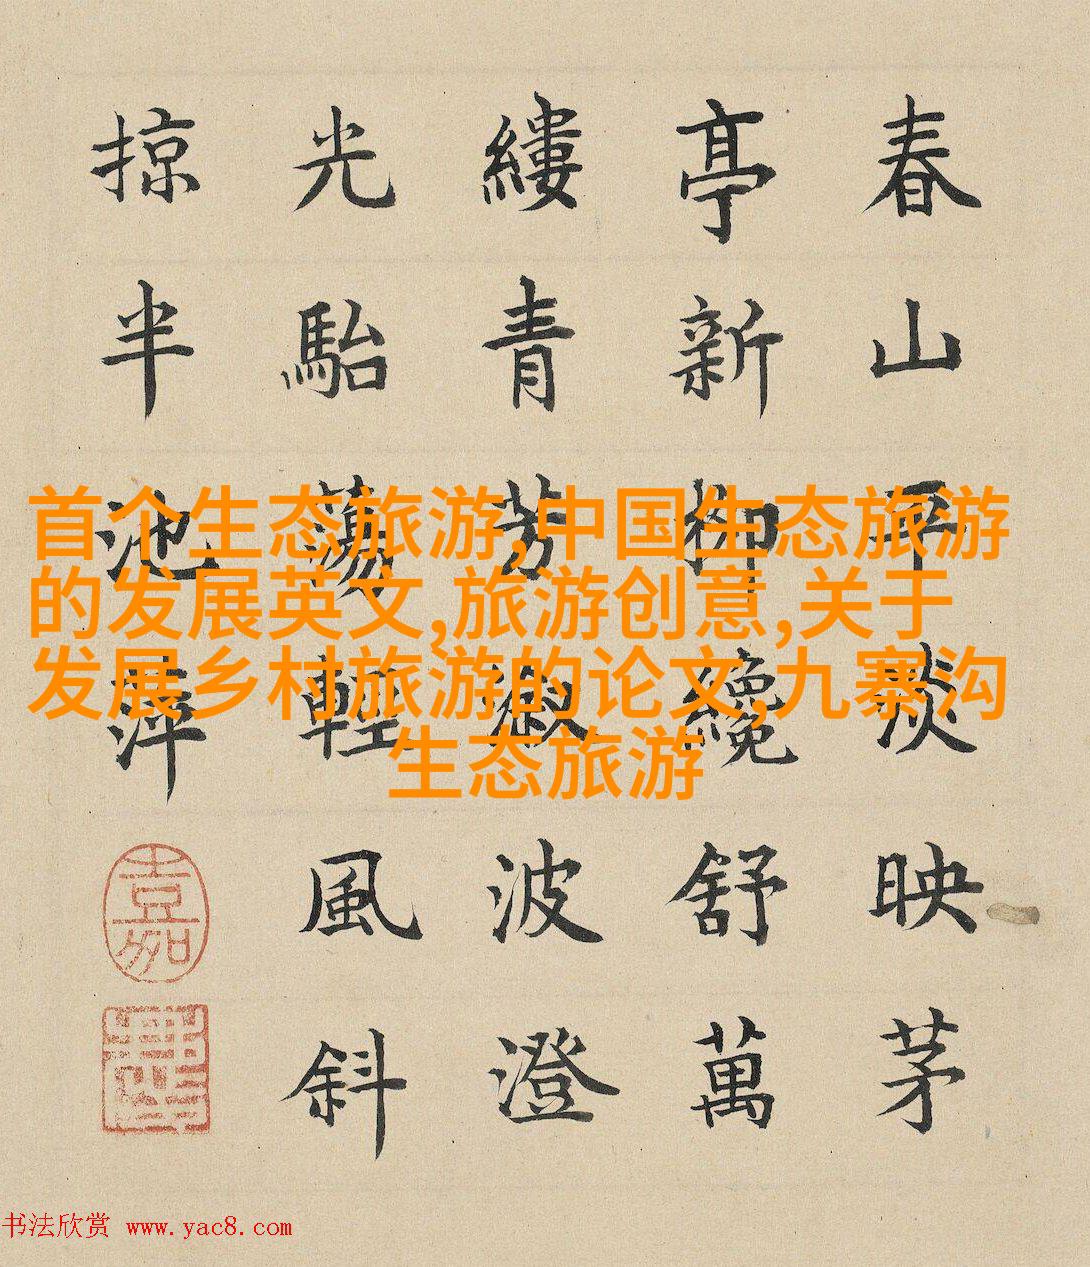 春山平淡映茅
亭新柳纔舒萬
縷青芳波澄
光駘蕩輕風斜
掠半池萍
首个生态旅游,中国生态旅游
的发展英文,旅游创意,关于
发展乡村旅游的论文,九寨沟
生态旅游
书法欣赏 www.yac8.com